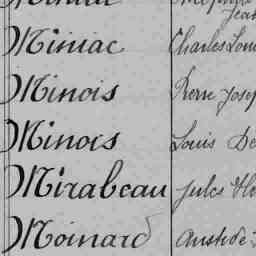 Jean
Miniac Charles Loui
Minois Pierre Josep
Minois Louis De
Mirabeau Jules
Moinard Aristide